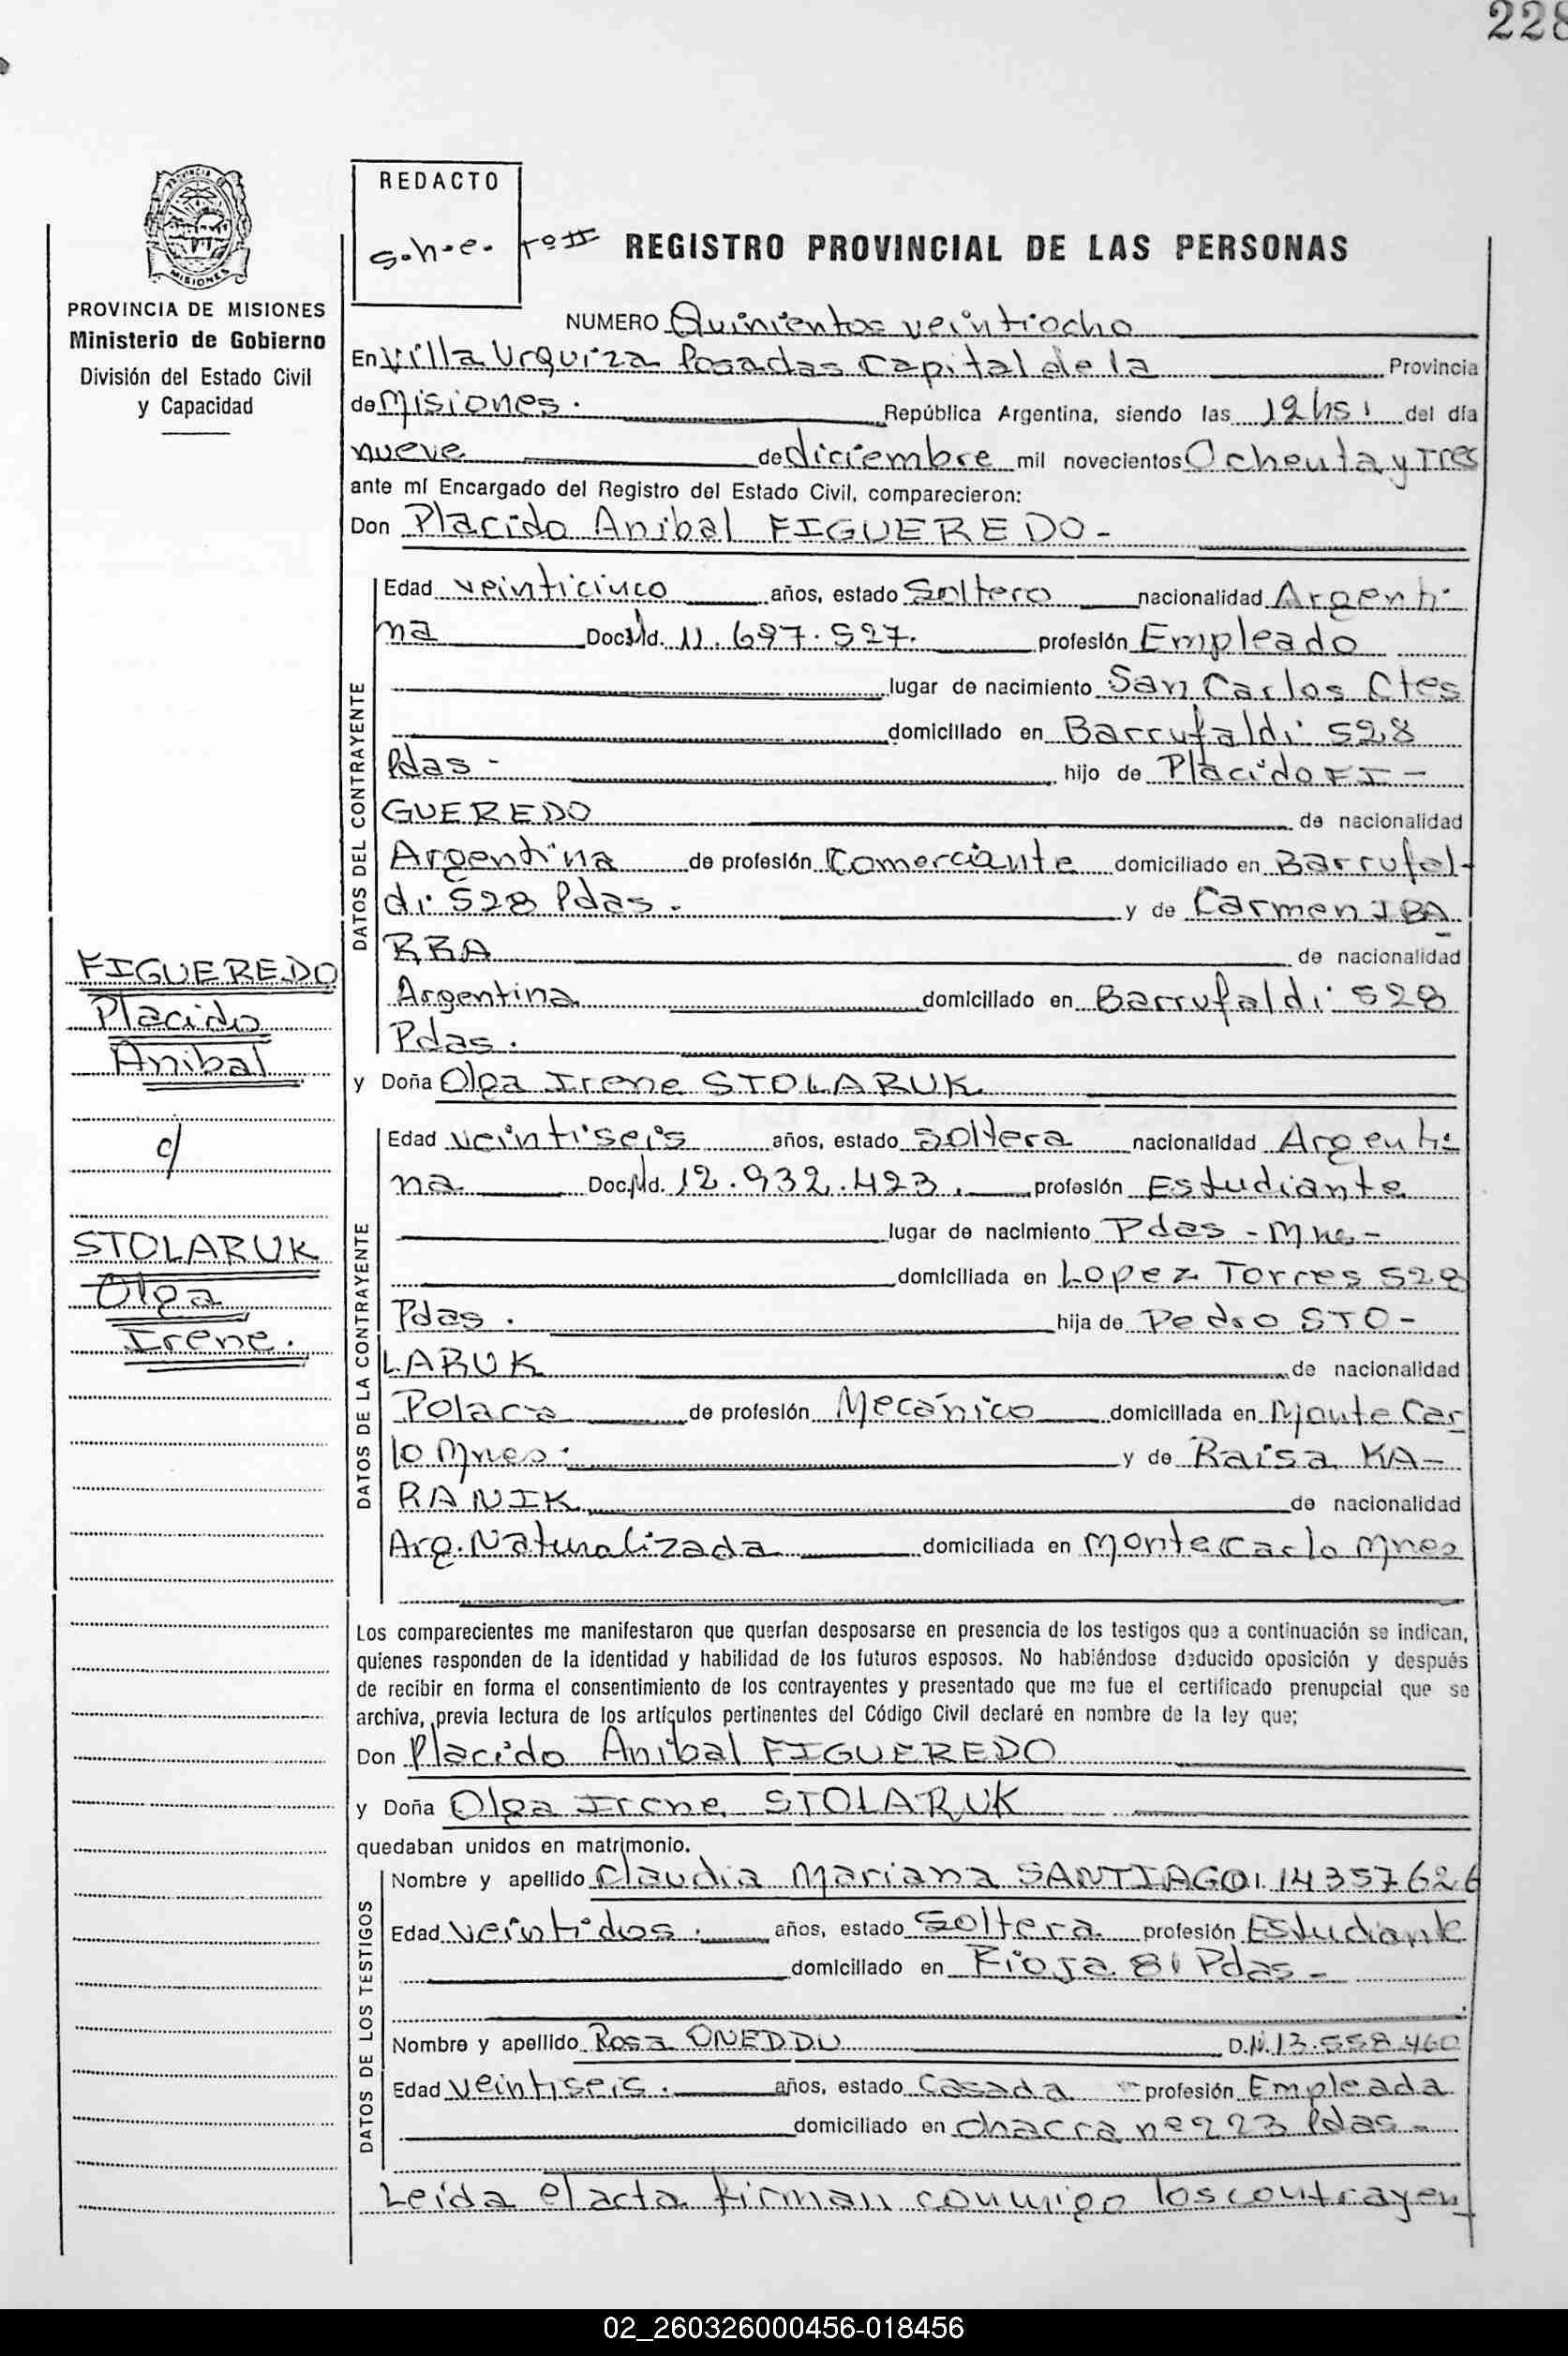 228
REDACTO
S.h.e. Tº II
REGISTRO PROVINCIAL DE LAS PERSONAS
PROVINCIA DE MISIONES
Ministerio de Gobierno
División del Estado Civil
y Capacidad
NUMERO Quinientos veintiocho
En Villa Urquiza Posadas Capital de la Provincia
de Misiones. República Argentina, siendo las 12 hs. del día
nueve de diciembre mil novecientos Ochenta y Tres
ante mí Encargado del Registro del Estado Civil, comparecieron:
Don Placido Anibal FIGUEREDO-
DATOS DEL CONTRAYENTE
Edad veinticinco años, estado Soltero nacionalidad Argenti
na Doc. Nd. 11.697.527. profesión Empleado
lugar de nacimiento San Carlos Ctes
domiciliado en Barrufaldi 528
Pdas - hijo de Placido FI-
GUEREDO de nacionalidad
Argentina de profesión Comerciante domiciliado en Barrufal-
di 528 Pdas. y de Carmen IBA
RRA de nacionalidad
Argentina domiciliado en Barrufaldi 528
Pdas.
FIGUEREDO
Placido
Anibal
c/
STOLARUK
Olga
Irene.
y Doña Olga Irene STOLARUK
DATOS DE LA CONTRAYENTE
Edad veintiseis años, estado Soltera nacionalidad Argenti
na Doc. Nd. 12.932.423. profesión Estudiante
lugar de nacimiento Pdas - Mnes -
domiciliada en Lopez Torres 528
Pdas. hija de Pedro STO-
LARUK de nacionalidad
Polaca de profesión Mecánico domiciliada en Monte Car
lo Mnes. y de Raisa KA-
RANIK de nacionalidad
Arg. Naturalizada domiciliada en Monte Carlo Mnes
Los comparecientes me manifestaron que querían desposarse en presencia de los testigos que a continuación se indican,
quienes responden de la identidad y habilidad de los futuros esposos. No habiéndose deducido oposición y después
de recibir en forma el consentimiento de los contrayentes y presentado que me fue el certificado prenupcial que se
archiva, previa lectura de los artículos pertinentes del Código Civil declaré en nombre de la ley que;
Don Placido Anibal FIGUEREDO
y Doña Olga Irene STOLARUK
quedaban unidos en matrimonio.
DATOS DE LOS TESTIGOS
Nombre y apellido Claudia Mariana SANTIAGO 14357626
Edad veintidos. años, estado Soltera profesión Estudiante
domiciliado en Rioja 81 Pdas -
Nombre y apellido Rosa ONEDDU D.N. 13.558.460
Edad veintiseis. años, estado Casada profesión Empleada
domiciliado en chacra nº 223 Pdas -
Leída el acta firman conmigo los contrayen
02_260326000456-018456